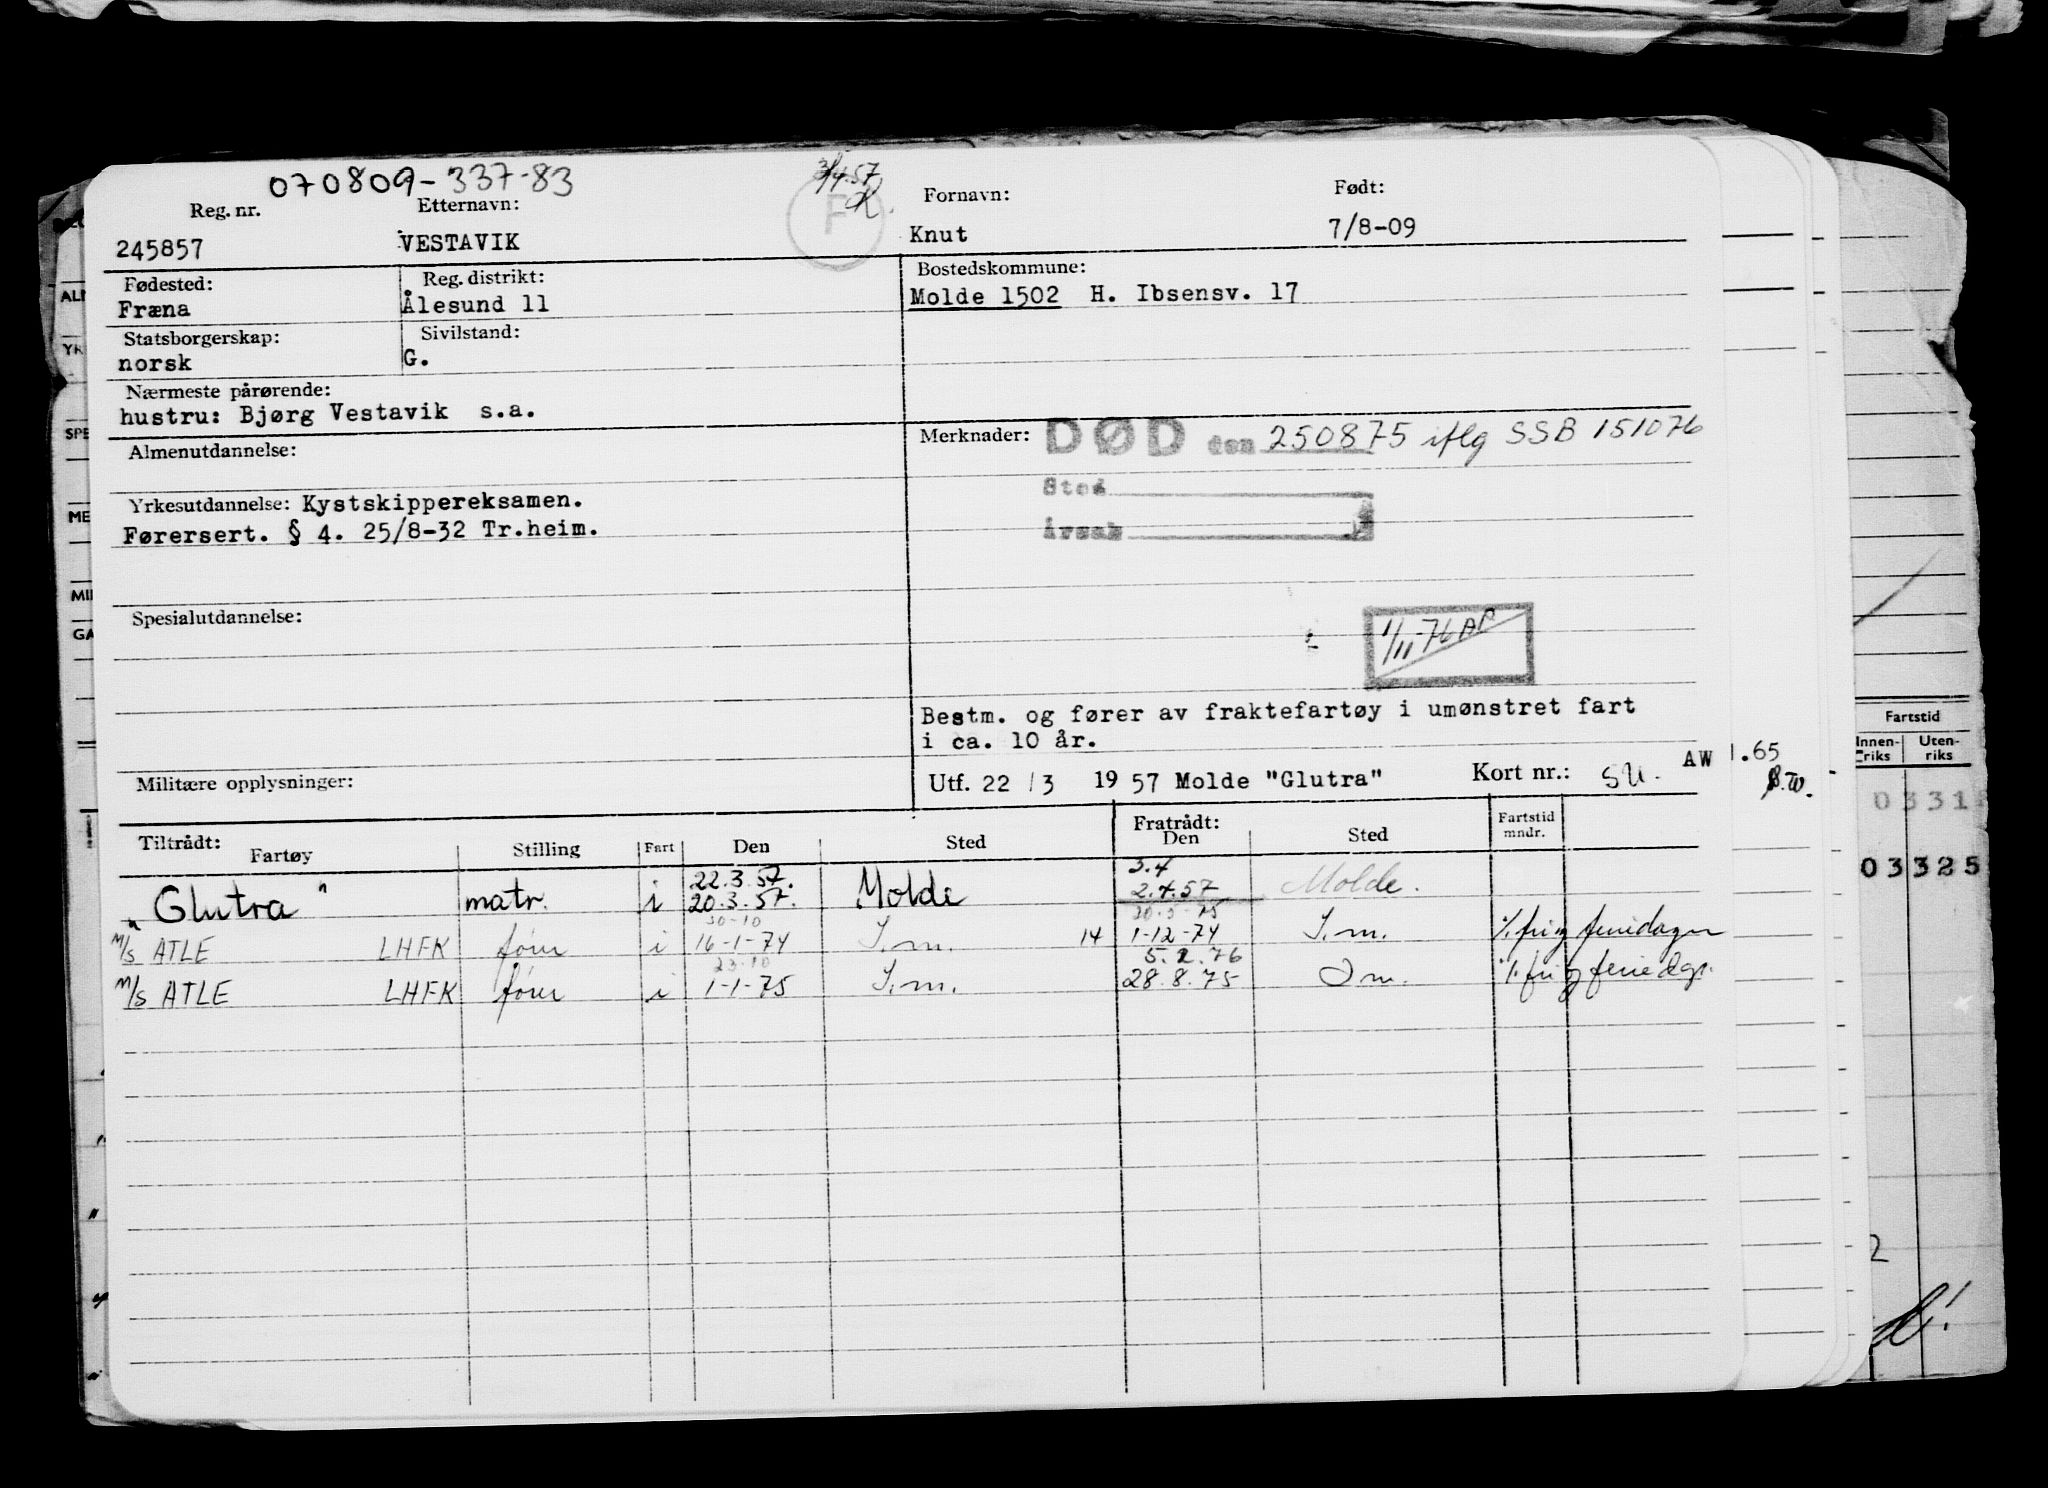 070809-337-83
3/4.57
F
Reg. nr. Etternavn: Fornavn: Født:
245857 VESTAVIK Knut 7/8-09
Fødested: Reg. distrikt: Bostedskommune:
Fræna Ålesund 11 Molde 1502 H. Ibsensv. 17
Statsborgerskap: Sivilstand:
norsk G.
Nærmeste pårørende:
hustru: Bjørg Vestavik s.a.
Almenutdannelse:
Merknader: DØD den 250875 iflg SSB 151076
Sted
Årsak
Yrkesutdannelse: Kystskippereksamen.
Førersert. § 4. 25/8-32 Tr.heim.
Spesialutdannelse:
1/11-76 AP
Bestm. og fører av fraktefartøy i umønstret fart
i ca. 10 år.
Militære opplysninger:
Utf. 22/3 1957 Molde "Glutra" Kort nr.: SU. AW 1.65
B.W.
Tiltrådt: Fratrådt: Fartstid
Fartøy Stilling Fart Den Sted Den Sted mndr.
22.3.57. 3.4
"Glutra" matr. i 20.3.57. Molde 2.4.57 Molde.
30-10 20-5-75
M/S ATLE LHFK fører i 16-1-74 I.m. 14 1-12-74 I.m. %fri og feriedager
23-10 5.2.76
M/S ATLE LHFK fører i 1-1-75 I.m. 28.8.75 I m. %fri og feriedgr.
ALM
YR
SPE
ME
MIL
GA
Fartstid
Innen-riks Uten-riks
03318
03325
2